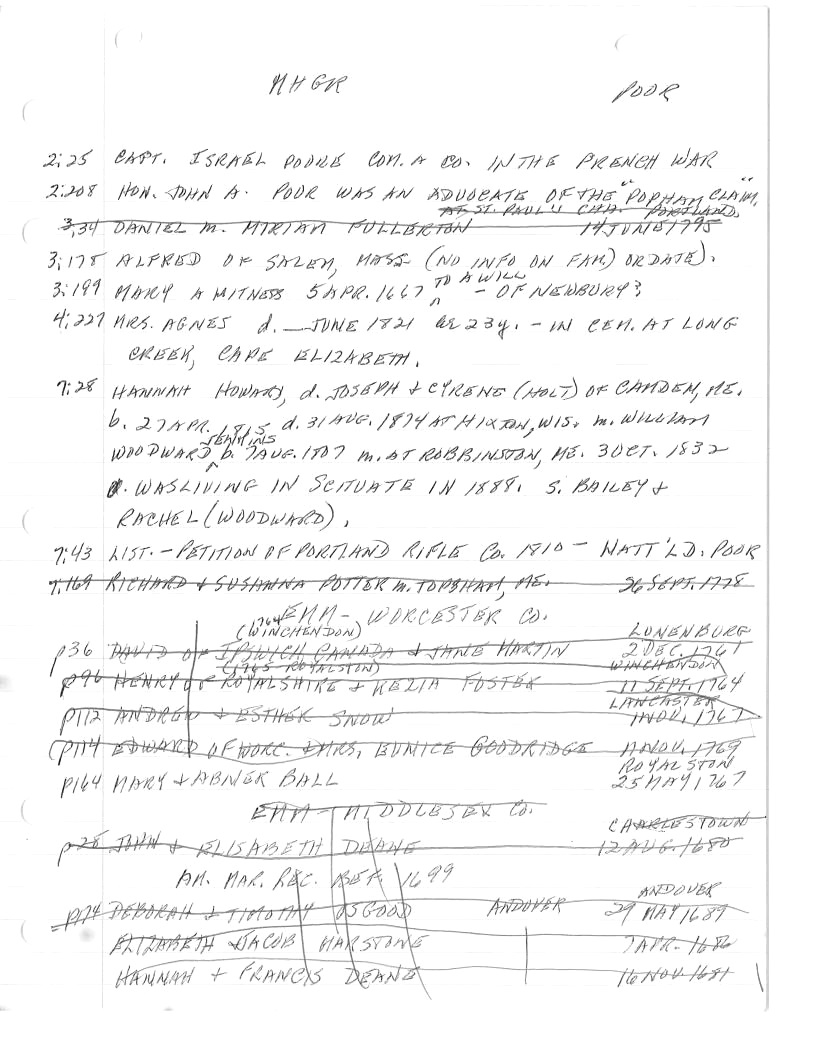 MHGR POOR
2:25 CAPT. ISRAEL POORE COM. A CO. IN THE FRENCH WAR
2:208 HON. JOHN A. POOR WAS AN ADVOCATE OF THE "POPHAM CLAIM."
AT ST. PAUL'S CHH. PORTLAND,
3:34 DANIEL M. MIRIAM FULLERTON 14 JUNE 1795
3:178 ALFRED OF SALEM, MASS (NO INFO ON FAM.) OR DATE).
3:199 MARY A WITNESS 5 APR. 1667 TO A WILL - OF NEWBURY?
4:227 MRS. AGNES d. __ JUNE 1821 ae 23y. - IN CEM. AT LONG
CREEK, CAPE ELIZABETH.
7:28 HANNAH HOWARD, d. JOSEPH & CYRENE (HOLT) OF CAMDEN, ME.
b. 27 APR. 1815 d. 31 AUG. 1874 AT HIXTON, WIS. m. WILLIAM
WOODWARD JENKINS b. 7 AUG. 1807 m. AT ROBBINSTON, ME. 3 OCT. 1832
WAS LIVING IN SCITUATE IN 1888. S. BAILEY &
RACHEL (WOODWARD).
7:43 LIST. - PETITION OF PORTLAND RIFLE CO. 1810 - NATT'L D. POOR
7:169 RICHARD & SUSANNA POTTER m. TOPSHAM, ME. 26 SEPT. 1778
EMM - WORCESTER CO.
1764 (WINCHENDON) LUNENBURG
p36 DAVID OF IPSWICH CANADA & JANE MARTIN 2 DEC. 1761
(1765 ROYALSTON) WINCHENDON
p96 HENRY OF ROYALSHIRE & KEZIA FOSTER 11 SEPT. 1764
LANCASTER
p112 ANDREW & ESTHER SNOW 1 NOV. 1767
(p114 EDWARD OF WORC. & MRS. EUNICE GOODRIDGE NOV. 1769
ROYALSTON
p164 MARY & ABNER BALL 25 MAY 1767
EMM - MIDDLESEX CO.
CHARLESTOWN
p28 JOHN & ELISABETH DEANE 12 AUG. 1680
AM. MAR. REC. BEF. 1699
ANDOVER
p174 DEBORAH & TIMOTHY OSGOOD ANDOVER 29 MAY 1689
ELIZABETH & JACOB MARSTONE 7 APR. 1686
HANNAH & FRANCIS DEANE 16 NOV. 1681